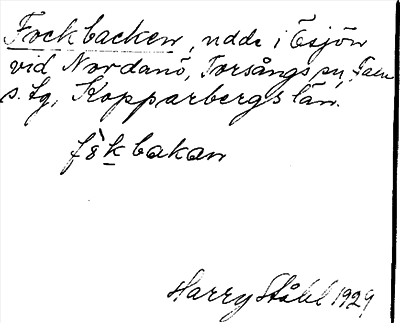 Fockbacken, udde i Ösjön
vid Nordanö, Torsångs sn, Falu
s. tg, Kopparbergs län.
fòkbakan
Harry Ståhl 1929